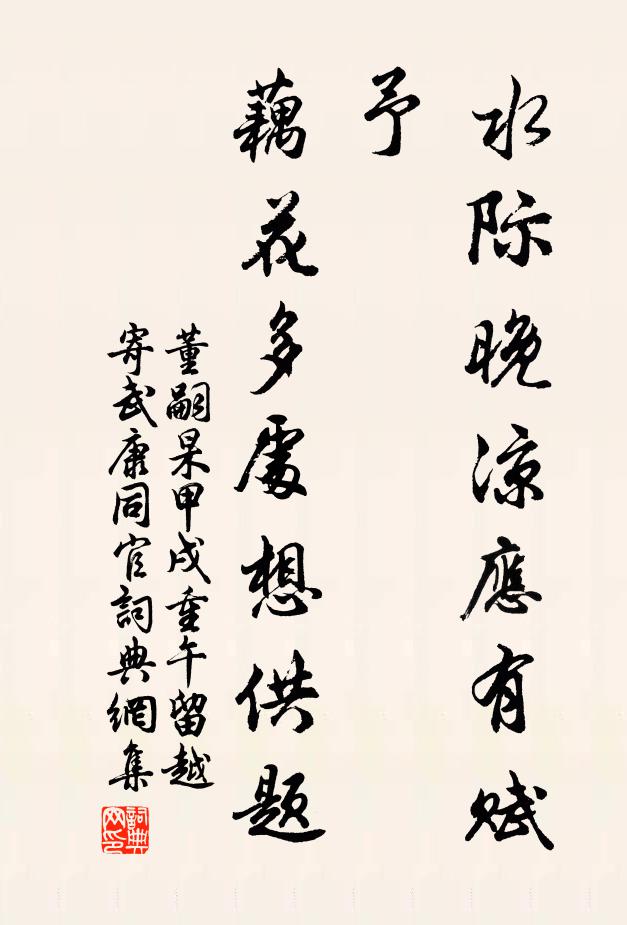 水际晚涼應有赋
予
藕花多處想供题
董嗣杲甲戌重午留越
寄武康同官詞典網集
詞典网印